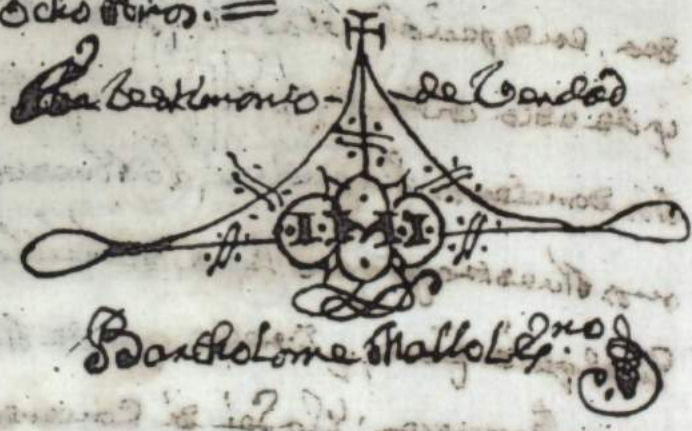 ocho años. =
En testimonio de Verdad
I M I
Bartholome Mallol Es.no